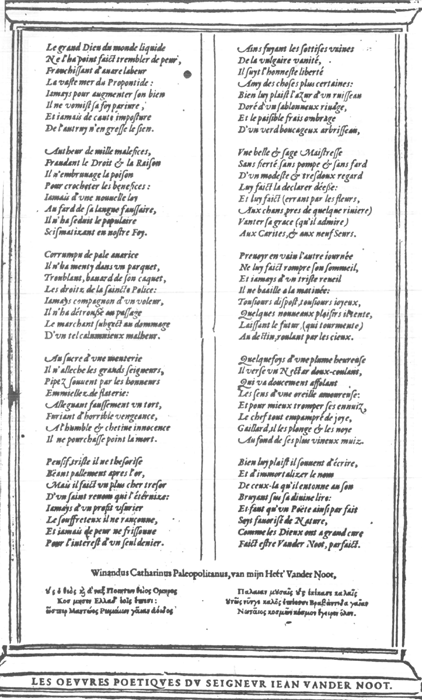 Le grand Dieu du monde liquide
Ne l'ha point faict trembler de peur,
Franchissant d'auare labeur
La vaste mer du Propontide:
Iamays pour augmenter son bien
Il ne vomist sa foy pariure,
Et iamais de caute imposture
De l'autruy n'engresse le sien.
Autheur de mille malefices,
Fraudant le Droit & la Raison
Il n'embrunage la poison
Pour crocheter les benefices:
Iamais d'vne nouuelle loy
Au fard de sa langue faussaire,
Il n'ha seduit le populaire
Scismatizant en nostre Foy.
Corrumpu de pale auarice
Il n'ha menty dans vn parquet,
Troublant, bauard de son caquet,
Les droitz de la saincte Police:
Iamays compagnon d'vn voleur,
Il n'ha détroußé au passage
Le marchant subgect au dommage
D'vn tel calumnieux malheur.
Au sucre d'vne menterie
Il n'alleche les grands seigneurs,
Pipez souuent par les honneurs
Emmiellez de flaterie:
Alleguant faussement vn tort,
Furiant d'horrible vengeance,
A l'humble & chetiue innocence
Il ne pourchasse point la mort.
Pensif, triste il ne thesorise
Béant pallement apres l'or,
Mais il faict vn plus cher tresor
D'vn saint renom qui l'éternize:
Iamays d'vn profit vsurier
Le souffreteux il ne rançonne,
Et iamais de peur ne frissonne
Pour l'interest d'vn seul denier.
Ains fuyant les sottises vaines
De la vulgaire vanité,
Il suyt l'honneste liberté
Amy des choses plus certaines:
Bien luy plaist l'azur d'vn ruisseau
Doré d'vn sablonneux riuage,
Et le paisible frais ombrage
D'vn verd boucageux arbrisseau,
Vne belle & sage Maistresse
Sans fierté sans pompe & sans fard
D'vn modeste & tresdoux regard
Luy faict la declarer déesse:
Et luy faict (errant par les fleurs,
Aux chans pres de quelque riuiere)
Vanter sa grace (qu'il admire)
Aux Carites, & aux neuf Seurs.
Procureur en vain l'autre iournée
Ne luy faict rompre son sommeil,
Et iamays d'vn triste reueil
Il ne baaille a la matinée:
Tousiours dispost, tousiours ioyeux,
Quelques nouueaux plaisirs inuente,
Laissant le futur (qui tourmente)
Au destin, roulant par les cieux.
Quelquefoys d'vne plume heureuse
Il verse vn Nectar doux-coulant,
Qui va doucement affolant
Les sens d'vne oreille amoureuse:
Et pour mieux tromper ses ennuiz,
Le chef tout empampré de ioye,
Gaillard, il les plonge & les noye
Au fond de ses plus vineux muiz.
Bien luy plaist il souuent d'écrire,
Et d'immortalizer le nom
De ceux-la qu'il entonne au son
Bruyant sous sa diuine lire:
Et faut qu'vn Poëte ainsi parfait
Soyt fauorisé de Nature,
Comme les Dieux ont a grand cure
Faict estre Vander Noot, parfaict.
Winandus Catharinus Paleopolitanus, van mijn Heer Vander Noot,
LES OEVVRES POETIQVES DV SEIGNEVR IEAN VANDER NOOT.